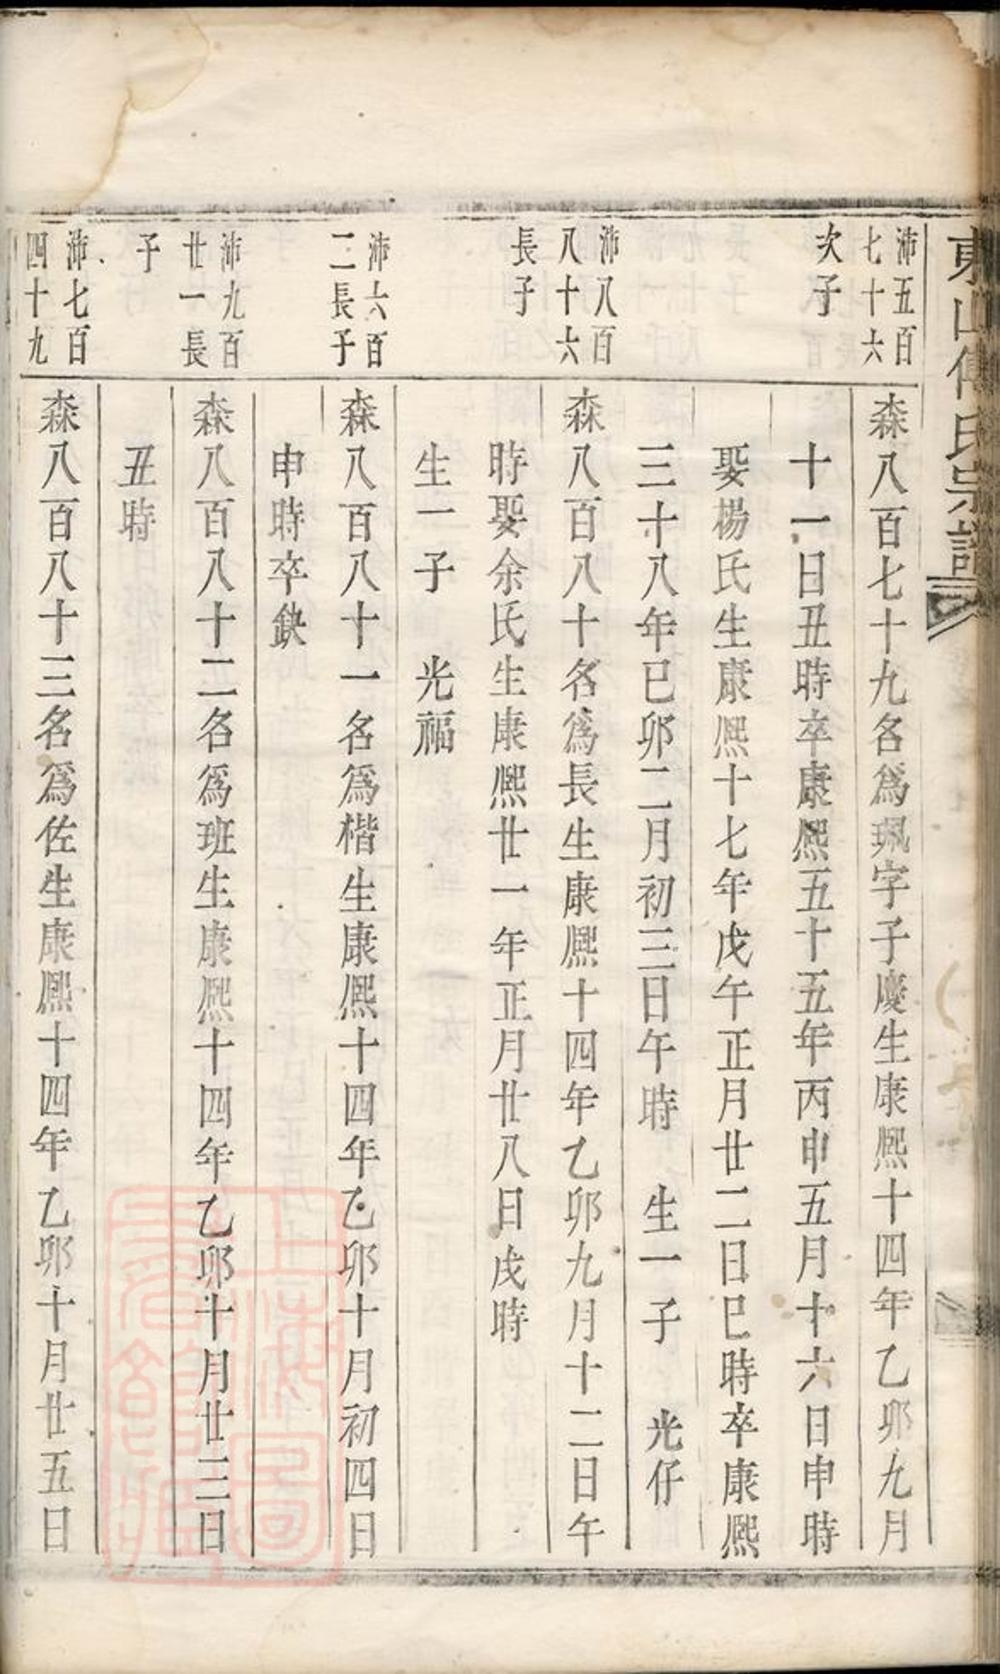 東山傅氏宗譜
沛五百
七十六
次子
森八百七十九名為珮字子慶生康熙十四年乙卯九月
十一日丑時卒康熙五十五年丙申五月十六日申時
娶楊氏生康熙十七年戊午正月廿二日巳時卒康熙
三十八年己卯二月初三日午時 生一子 光仔
沛八百
八十六
長子
森八百八十名為長生康熙十四年乙卯九月十二日午
時娶余氏生康熙廿一年正月廿八日戌時
生一子 光福
沛六百
二長子
森八百八十一名為楷生康熙十四年乙卯十月初四日
申時卒缺
沛九百
廿一長
子
森八百八十二名為班生康熙十四年乙卯十月廿三日
丑時
沛七百
四十九
森八百八十三名為佐生康熙十四年乙卯十月廿五日
上海圖
書館藏